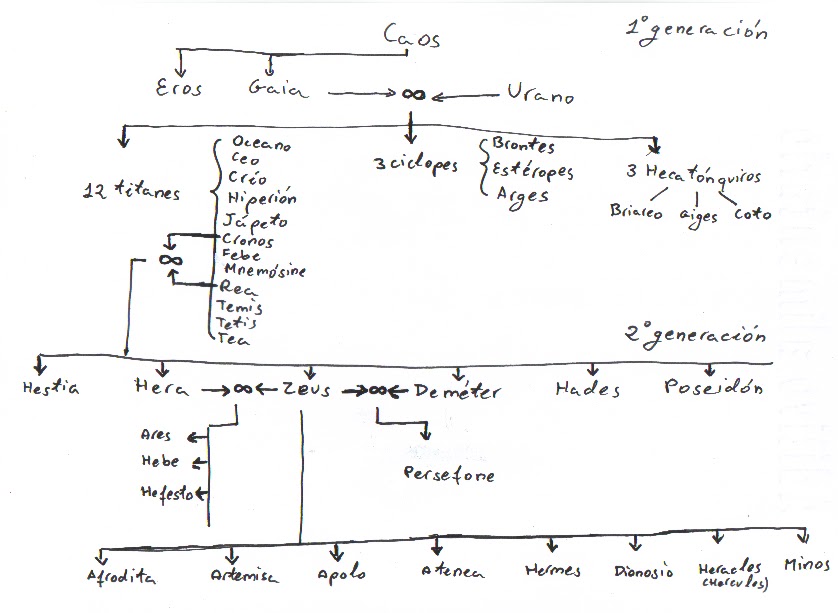 Caos
1º generación
Eros
Gaia
Urano
12 titanes
Oceano
Ceo
Crío
Hiperión
Jápeto
Cronos
Febe
Mnemósine
Rea
Temis
Tetis
Tea
3 ciclopes
Brontes
Estéropes
Arges
3 Hecatónquiros
Briareo
aiges
Coto
2º generación
Hestia
Hera
Zeus
Deméter
Hades
Poseidón
Ares
Hebe
Hefesto
Persefone
Afrodita
Artemisa
Apolo
Atenea
Hermes
Dionosio
Heracles
(Hercules)
Minos